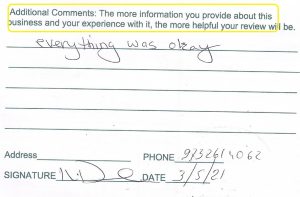 Additional Comments: The more information you provide about this
business and your experience with it, the more helpful your review will be.
everything was okay
Address PHONE 9732614062
SIGNATURE DATE 3/5/21